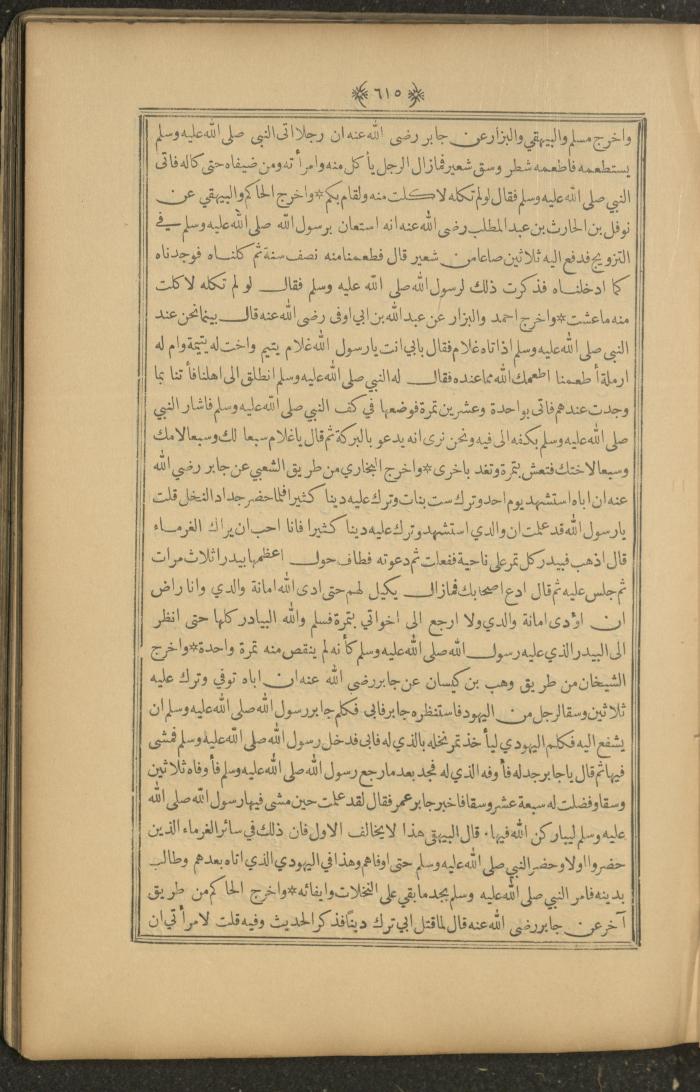 ﴿ ٦١٥ ﴾
واخرج مسلم والبيهقي والبزار عن جابر رضى الله عنه ان رجلا اتى النبي صلى الله عليه وسلم
يستطعمه فاطعمه شطر وسق شعير فمازال الرجل يأكل منه وامرأته ومن ضيفاه حتى كاله فاتى
النبي صلى الله عليه وسلم فقال لو لم تكله لاكلت منه ولقام بكم * واخرج الحاكم والبيهقي عن
نوفل بن الحارث بن عبد المطلب رضى الله عنه انه استعان برسول الله صلى الله عليه وسلم في
التزويج فدفع اليه ثلاثين صاعا من شعير قال فطعمنا منه نصف سنة ثم كلناه فوجدناه
كما ادخلناه فذكرت ذلك لرسول الله صلى الله عليه وسلم فقال لو لم تكله لاكلت
منه ماعشت * واخرج احمد والبزار عن عبد الله بن ابي اوفى رضى الله عنه قال بينما نحن عند
النبي صلى الله عليه وسلم اذ اتاه غلام فقال بابي انت يا رسول الله غلام يتيم واخت له يتيمة وام له
ارملة أطعمنا اطعمك الله مما عنده فقال له النبي صلى الله عليه وسلم انطلق الى اهلنا فأتنا بما
وجدت عندهم فاتى بواحدة وعشرين تمرة فوضعها في كف النبي صلى الله عليه وسلم فاشار النبي
صلى الله عليه وسلم بكفه الى فيه ونحن نرى انه يدعو بالبركة ثم قال ياغلام سبعا لك وسبعا لامك
وسبعا لاختك فتعش بتمرة وتغد باخرى * واخرج البخاري من طريق الشعبي عن جابر رضي الله
عنه ان اباه استشهد يوم احد وترك ست بنات وترك عليه دينا كثيرا فلما حضر جداد النخل قلت
يارسول الله قد علمت ان والدي استشهد وترك عليه دينا كثيرا فانا احب ان يراك الغرماء
قال اذهب فبيدر كل تمر على ناحية ففعلت ثم دعوته فطاف حول اعظمها بيدرا ثلاث مرات
ثم جلس عليه ثم قال ادع اصحابك فمازال يكيل لهم حتى ادى الله امانة والدي وانا راض
ان اؤدى امانة والدي ولا ارجع الى اخواتي بتمرة فسلم والله البيادر كلها حتى انظر
الى البيدر الذي عليه رسول الله صلى الله عليه وسلم كأنه لم ينقص منه تمرة واحدة * واخرج
الشيخان من طريق وهب بن كيسان عن جابر رضى الله عنه ان اباه توفي وترك عليه
ثلاثين وسقا لرجل من اليهود فاستنظره جابر فابى فكلم جابر رسول الله صلى الله عليه وسلم ان
يشفع اليه فكلم اليهودي ليأخذ تمر نخله بالذي له فابى فدخل رسول الله صلى الله عليه وسلم فمشى
فيها ثم قال ياجابر جد له فأوفه الذي له فجد بعد ما رجع رسول الله صلى الله عليه وسلم فأوفاه ثلاثين
وسقا وفضلت له سبعة عشر وسقا فاخبر جابر عمر فقال لقد علمت حين مشى فيها رسول الله صلى الله
عليه وسلم ليباركن الله فيها ٠ قال البيهقى هذا لا يخالف الاول فان ذلك في سائر الغرماء الذين
حضروا اولا وحضر النبي صلى الله عليه وسلم حتى اوفاهم وهذا في اليهودي الذي اتاه بعدهم وطالب
بدينه فامر النبي صلى الله عليه وسلم بجد مابقي على النخلات وايفائه * واخرج الحاكم من طريق
آخر عن جابر رضى الله عنه قال لما قتل ابي ترك دينًا فذكر الحديث وفيه قلت لامرأتي ان